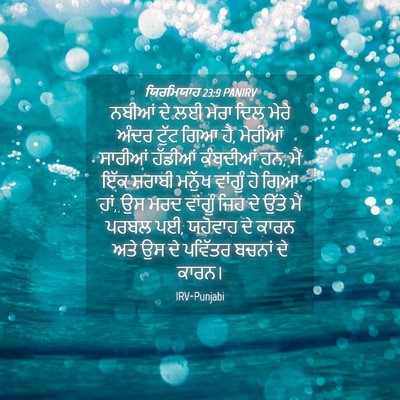 ਯਿਰਮਿਯਾਹ 23:9 PANIRV
ਨਬੀਆਂ ਦੇ ਲਈ ਮੇਰਾ ਦਿਲ ਮੇਰੇ
ਅੰਦਰ ਟੁੱਟ ਗਿਆ ਹੈ, ਮੇਰੀਆਂ
ਸਾਰੀਆਂ ਹੱਡੀਆਂ ਕੰਬਦੀਆਂ ਹਨ, ਮੈਂ
ਇੱਕ ਸ਼ਰਾਬੀ ਮਨੁੱਖ ਵਾਂਗੂੰ ਹੋ ਗਿਆ
ਹਾਂ, ਉਸ ਮਰਦ ਵਾਂਗੂੰ ਜਿਹ ਦੇ ਉੱਤੇ ਮੈਂ
ਪਰਬਲ ਪਈ, ਯਹੋਵਾਹ ਦੇ ਕਾਰਨ
ਅਤੇ ਉਸ ਦੇ ਪਵਿੱਤਰ ਬਚਨਾਂ ਦੇ
ਕਾਰਨ।
IRV-Punjabi